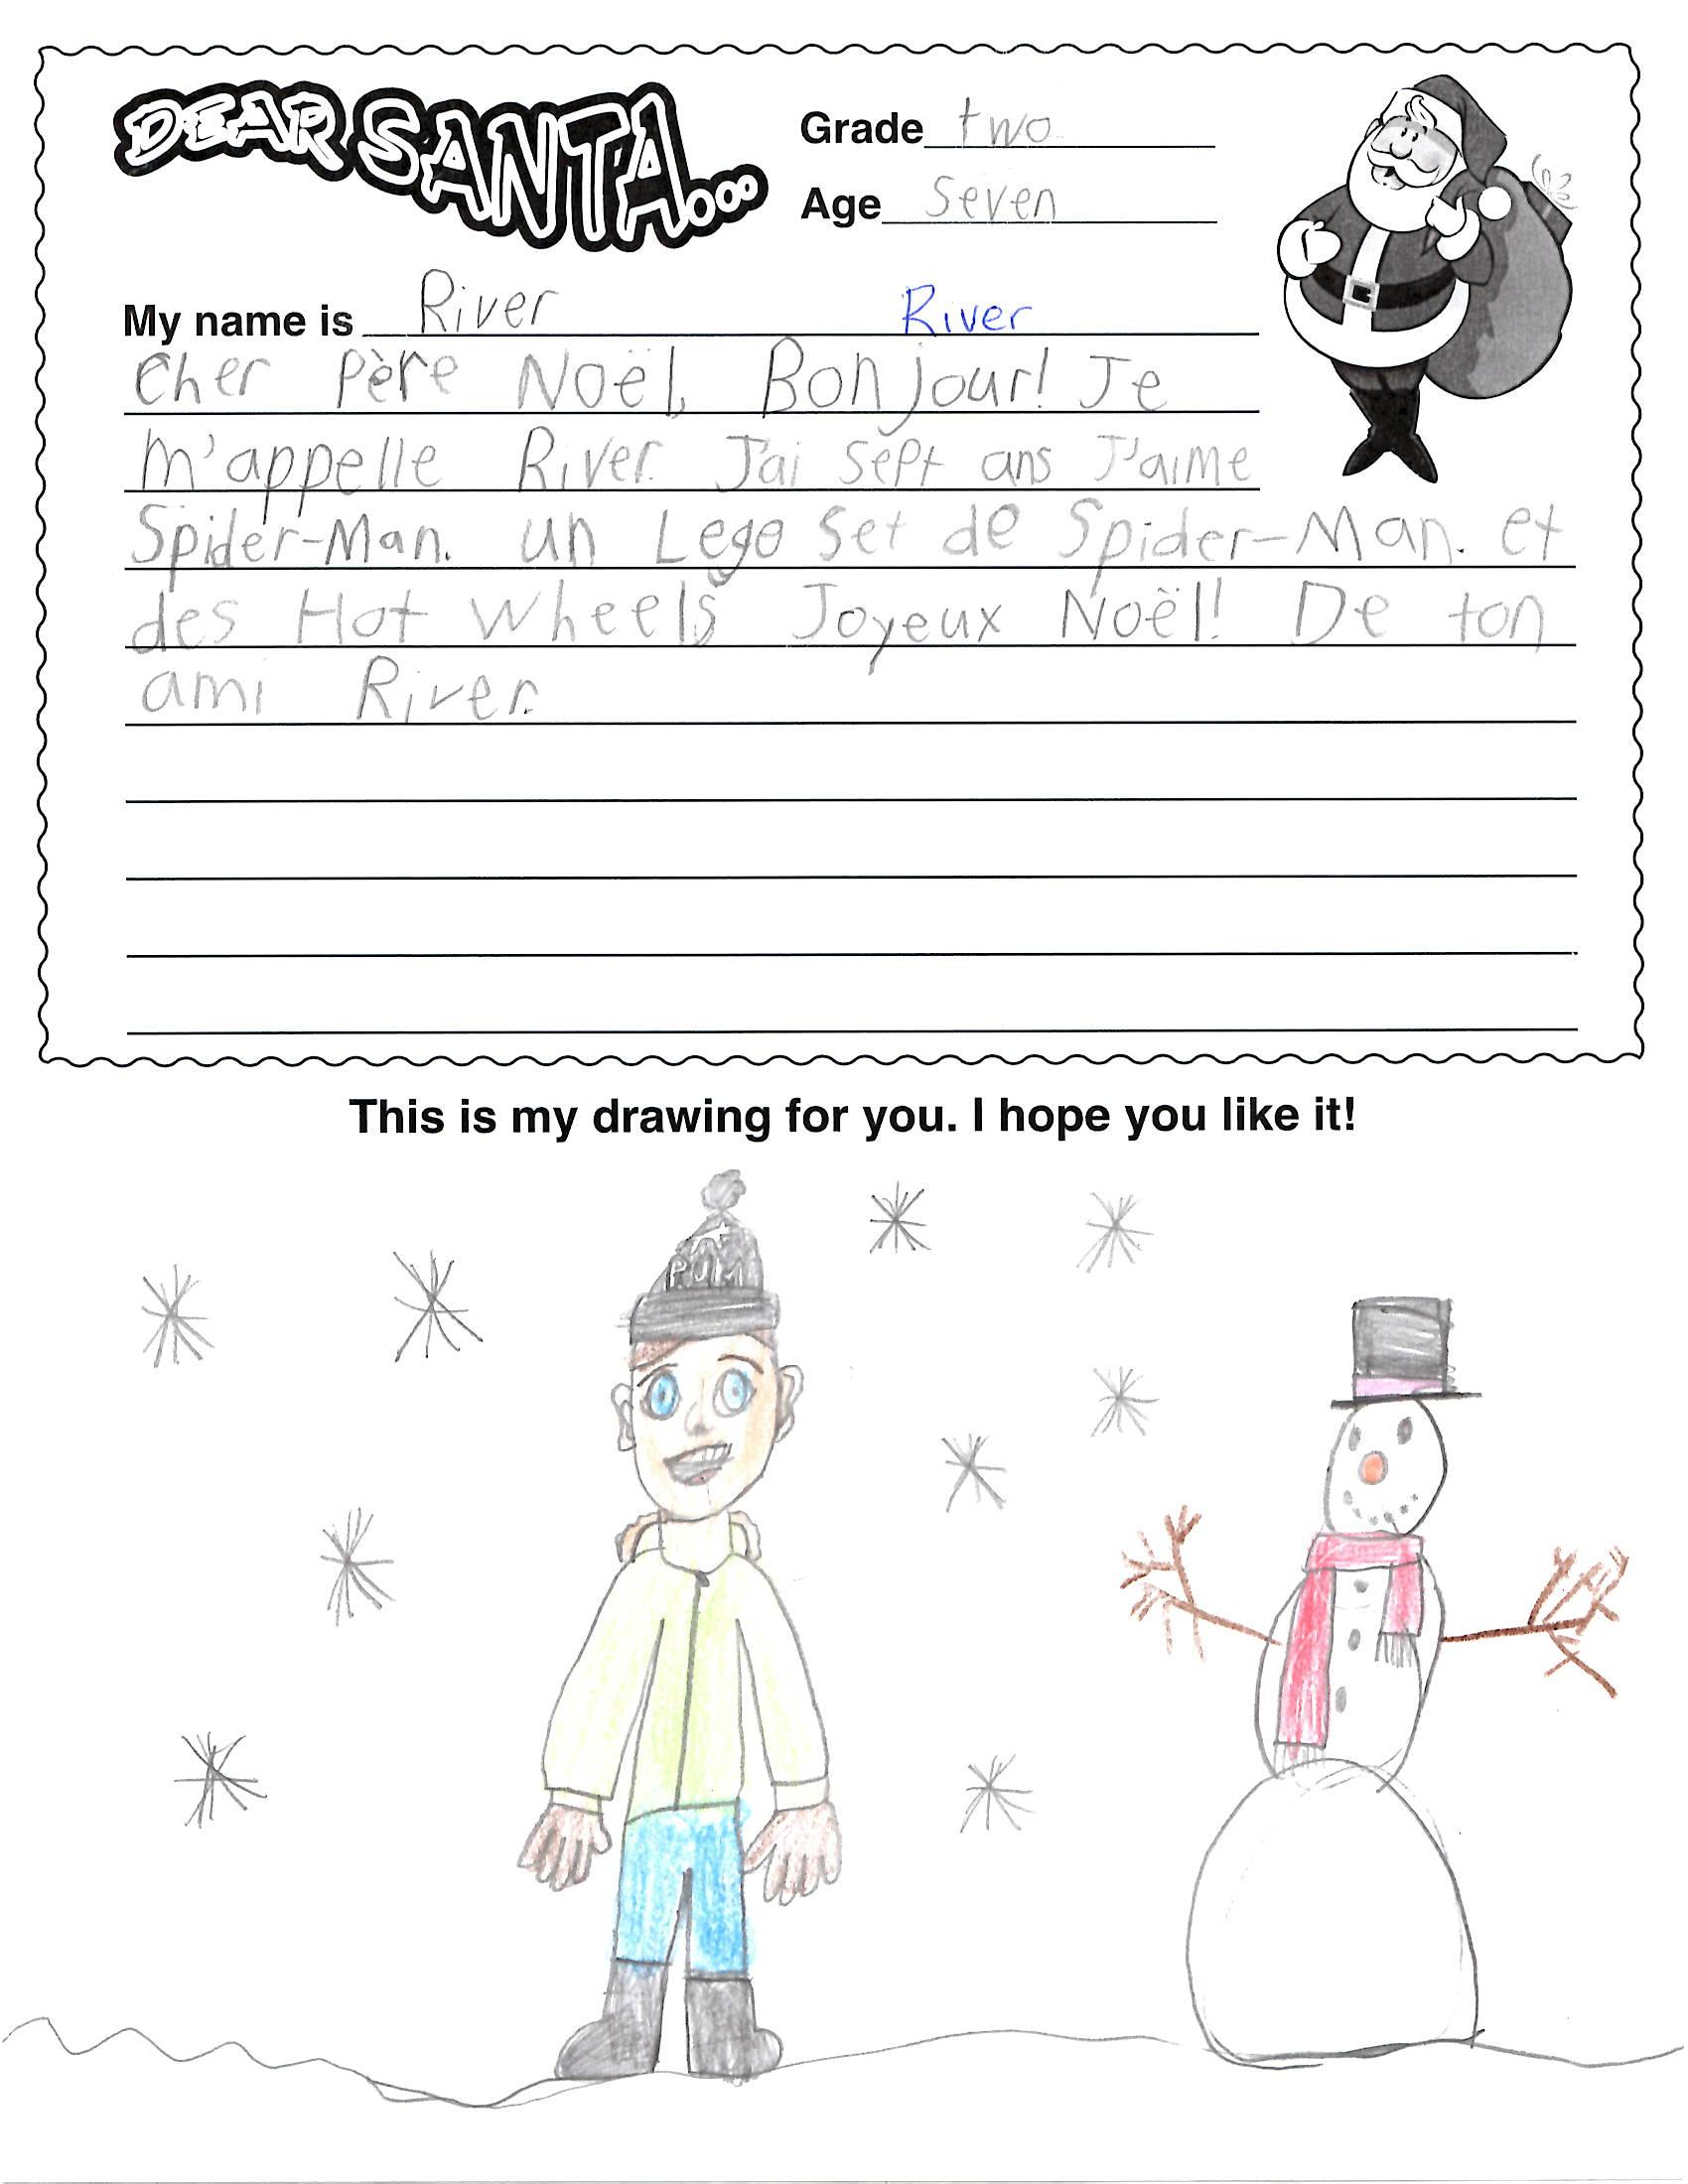 DEAR SANTA...
Grade two
Age seven
My name is River River
Cher Père Noël, Bonjour! Je
m'appelle River. J'ai sept ans J'aime
Spider-Man. un Lego set de Spider-Man. et
des Hot Wheels Joyeux Noël! De ton
ami River.
This is my drawing for you. I hope you like it!
PUM